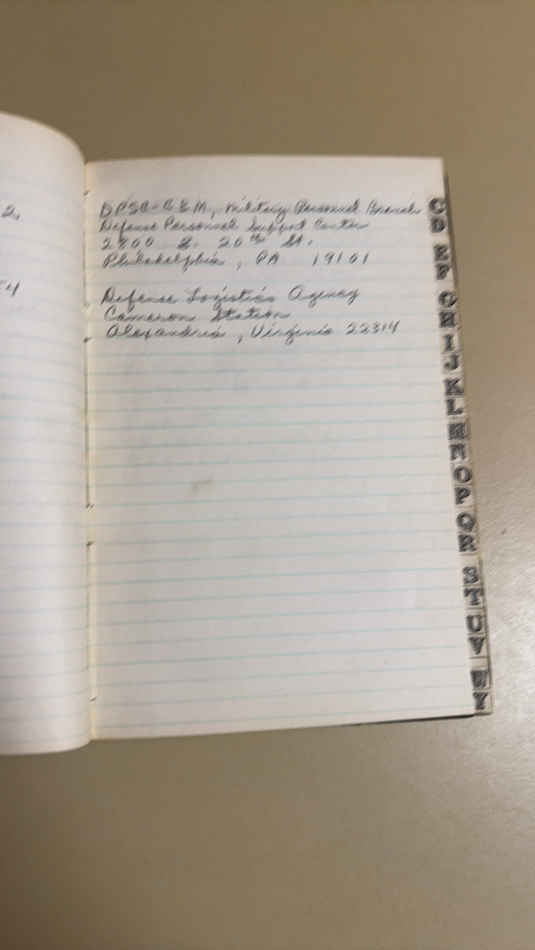 2,
54
DPSC-G&M, Military Personnel Branch
Defense Personnel Support Center
2800 S. 20th St.
Philadelphia, PA 19101
Defense Logistics Agency
Cameron Station
Alexandria, Virginia 22314
C
D
E
F
G
H
I
J
K
L
M
N
O
P
Q
R
S
T
U
V
W
Y